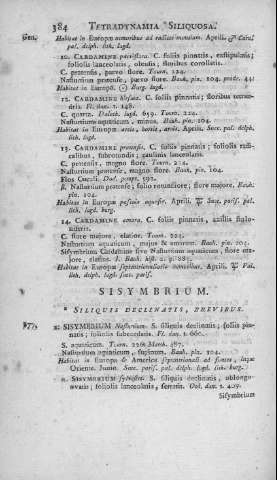 384 TETRADYNAMIA SILIQUOSA.
Habitat in Europæ nemoribus ad radices montium. Aprili.
pal. delph. lith. lugd.
10. CARDAMINE parviflora. C. foliis pinnatis, exstipulatis;
foliolis lanceolatis, obtusis; floribus corollatis.
C. pratensis, parvo flore. Tourn. 224.
Nasturtium pratense, parvo flore. Bauh. pin. 104. prodr. 44.
Habitat in Europa. Burg. lugd.
12. CARDAMINE hirsuta. C. foliis pinnatis, floribus tetran-
driis. Fl. dan. t. 148.
C. quarta. Dalech. lugd. 659. Tourn. 224.
Nasturtium aquaticum, minus. Bauh. pin. 104.
Habitat in Europæ areis, hortis, arvis. Aprili. Suec. pal. delph.
lith. lugd.
13. CARDAMINE pratensis. C. foliis pinnatis; foliolis radi-
calibus, subrotundis; caulinis lanceolatis.
C. pratensis, magno flore. Tourn. 224.
Nasturtium pratense, magno flore. Bauh. pin. 104.
Flos Cuculi. Dod. pempt. 592.
β. Nasturtium pratense; folio rotundiore; flore majore. Bauh.
pin. 104.
Habitat in Europæ pascuis aquosis. Aprili. Suec. paris. pal.
lith. lugd. burg.
14. CARDAMINE amara. C. foliis pinnatis, axillis stolo-
niferis.
C. flore majore, elatior. Tourn. 224.
Nasturtium aquaticum, majus & amarum. Bauh. pin. 104.
Sisymbrium Cardamine sive Nasturtium aquaticum, flore ma-
jore, elatius. J. Bauh. hist. 2. p. 885.
Habitat in Europæ septentrionalioris nemoribus. Aprili. Pal.
lith. delph. lugd. suec. paris.
SISYMBRIUM.
* SILIQUIS DECLINATIS, BREVIBUS.
877. 1. SISYMBRIUM Nasturtium. S. siliquis declinatis; foliis pin-
natis; foliolis subcordatis. Fl. dan. t. 690.
S. aquaticum. Tourn. 226. March. 487.
Nasturtium aquaticum, supinum. Bauh. pin. 104.
Habitat in Europa & America septentrionali ad fontes, inque
Oriente. Junio. Suec. paris. pal. delph. lugd. lith. burg.
2. SISYMBRIUM sylvestre. S. siliquis declinatis, oblongo-
ovatis; foliolis lanceolatis, serratis. Oed. dan. t. 409.
Sisymbrium